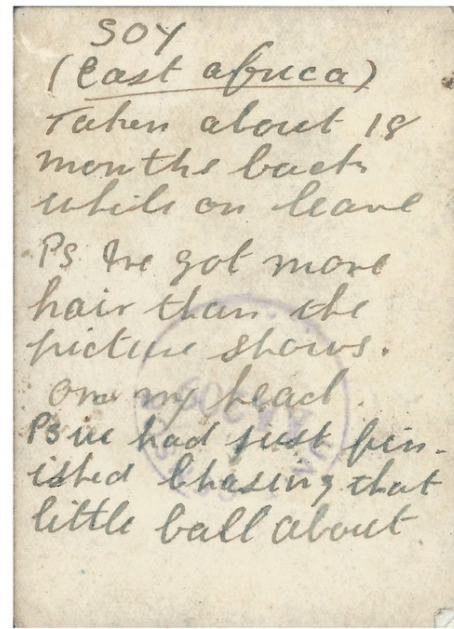 SOY
(East africa)
Taken about 18
months back
while on leave
Ps Ive got more
hair than the
picture shows.
on my head.
Ps we had just fin-
ished chasing that
little ball about